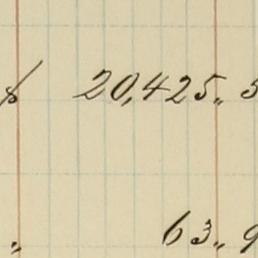 $ 20,425.. 5
.. 63.. 9